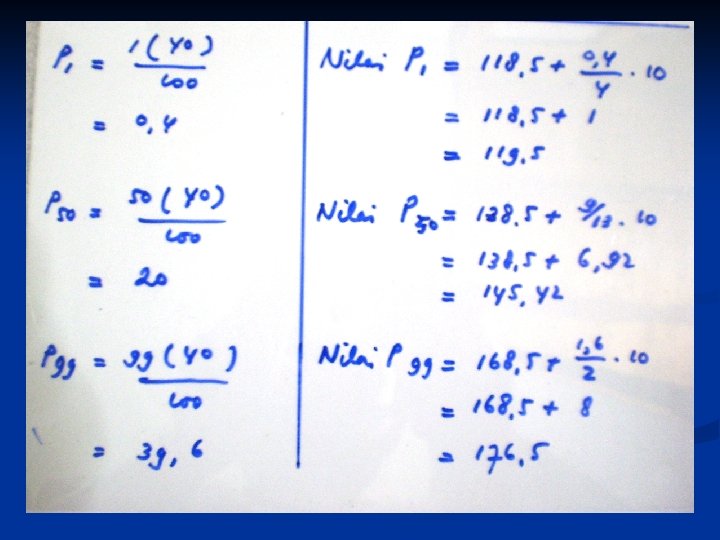 P1 = 1(40)
100
= 0,4
P50 = 50(40)
100
= 20
P99 = 99(40)
100
= 39,6
Nilai P1 = 118,5 + 0,4/4 . 10
= 118,5 + 1
= 119,5
Nilai P50 = 138.5 + 9/13 . 10
= 138,5 + 6,92
= 145,42
Nilai P99 = 168,5 + 1,6/2 . 10
= 168,5 + 8
= 176,5